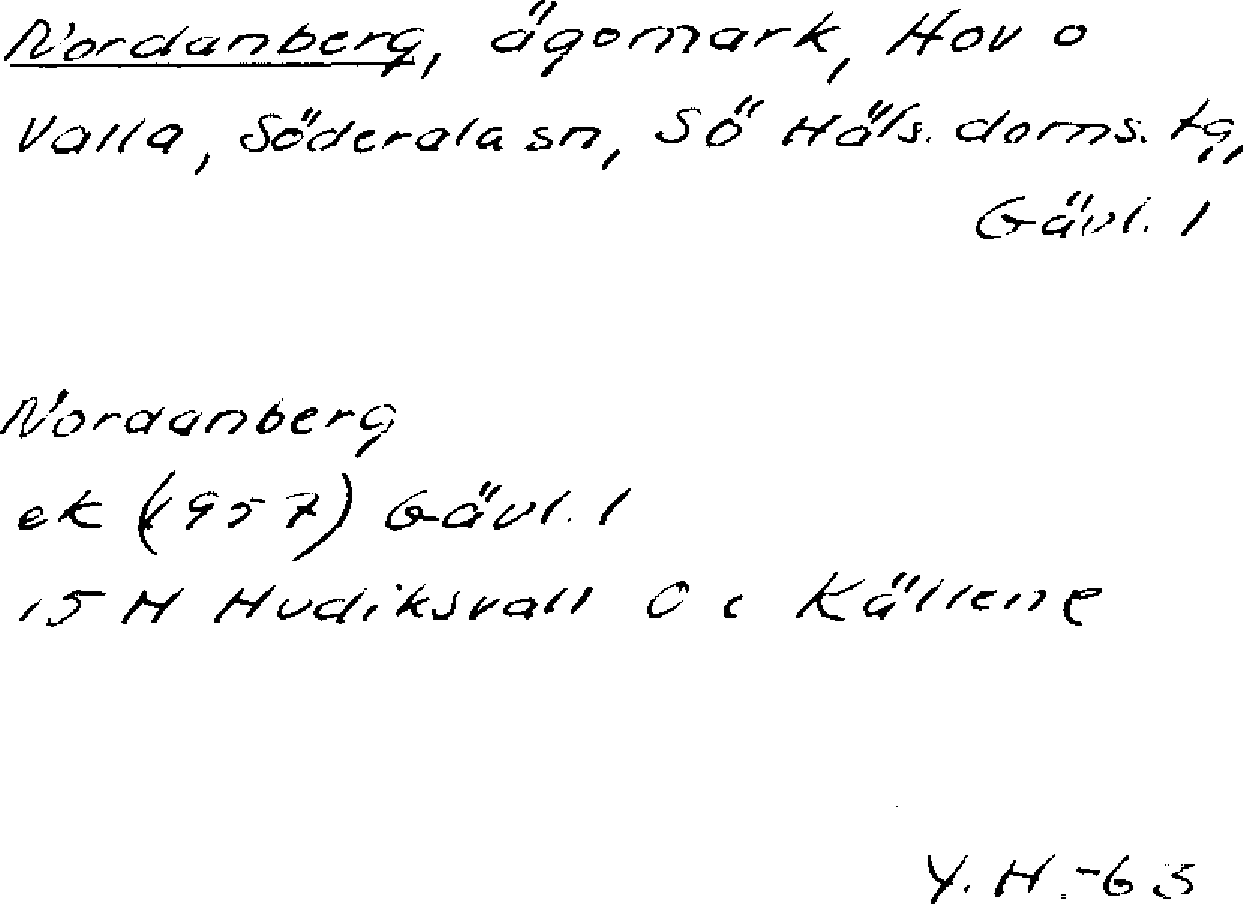 Nordanberg, ägomark, Hov o
Valla, Söderala sn, Sö Häls. doms. tg,
Gävl. l
Nordanberg
ek (1957) Gävl. l
15 H Hudiksvall 0 c Källene
Y. H. -63